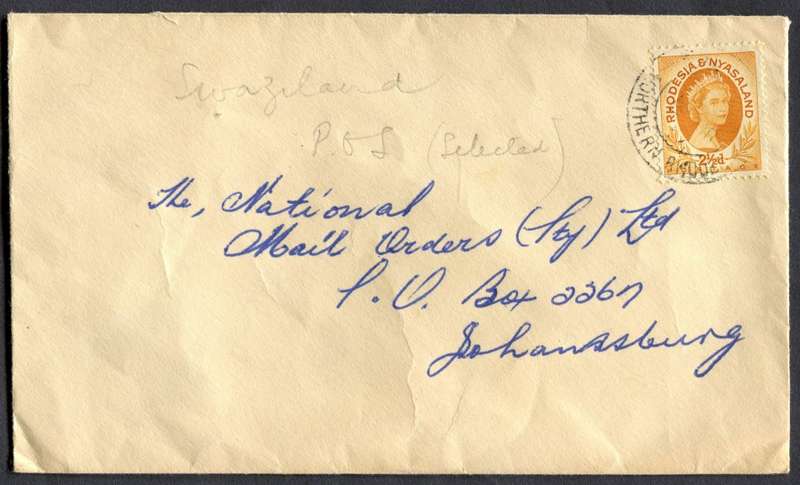 Swaziland
P.O.S (Selected)
RHODESIA & NYASALAND
2½d
POSTAGE
NORTHERN RHODE
The, National
Mail Orders (Pty) Ltd
P. O. Box 2267
Johannssburg